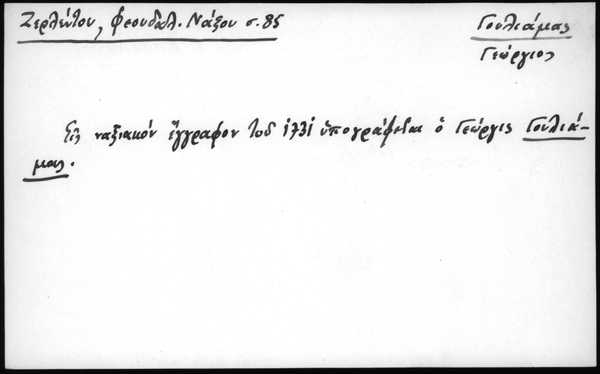 Ζερλέντου, Φεουδαλ. Νάξου σ. 85
Γουλιάμας
Γεώργιος
Εἰς ναξιακόν ἔγγραφον τοῦ 1731 ὑπογράφεται ὁ Γεώργις Γουλιά-
μας.